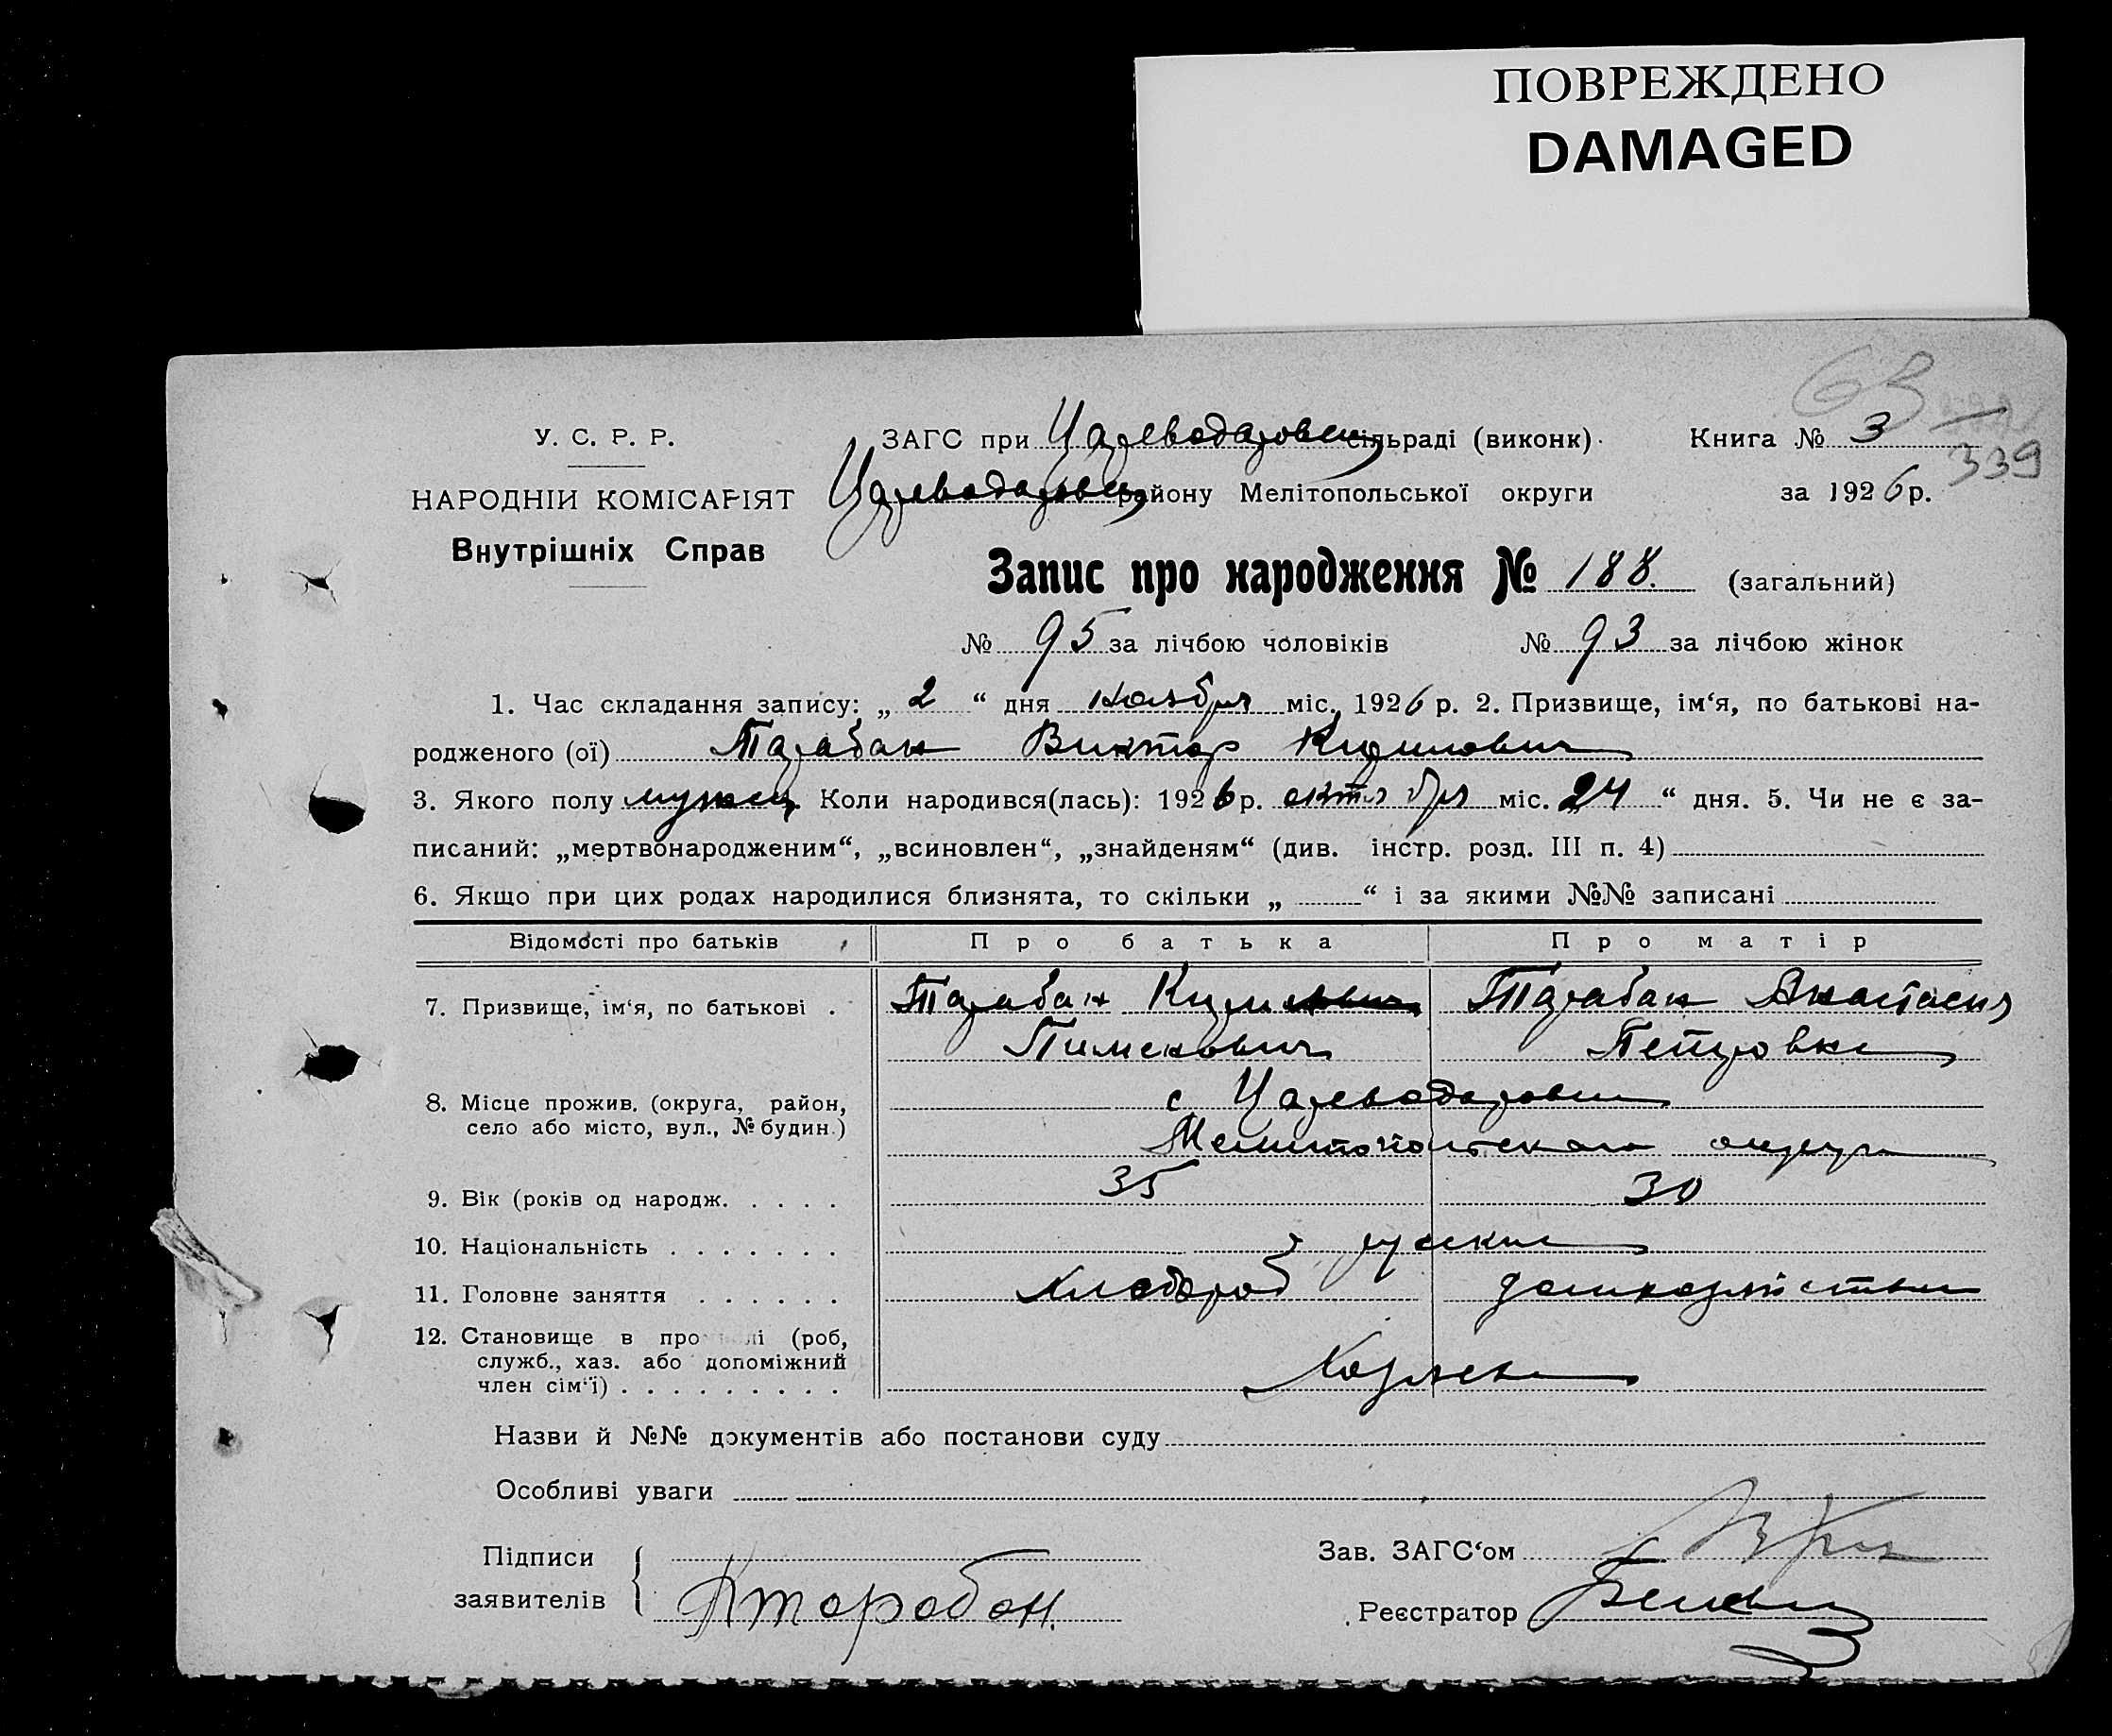 ПОВРЕЖДЕНО
DAMAGED
63
339
У. С. Р. Р.
ЗАГС при Цареводаровск сільраді (виконк).
Книга № 3
НАРОДНІЙ КОМІСАРІЯТ
Цареводаровск району Мелітопольської округи
за 1926 р.
Внутрішніх Справ
Запис про народження № 188. (загальний)
№ 95 за лічбою чоловіків № 93 за лічбою жінок
1. Час складання запису: „ 2 “ дня ноября міс. 1926 р. 2. Призвище, ім‘я, по батькові на-
родженого (ої) Тарабан Виктор Кирилович
3. Якого полу мужск. Коли народився(лась): 1926 р. октября міс. 24 “ дня. 5. Чи не є за-
писаний: „мертвонародженим“, „всиновлен“, „знайденям“ (див. інстр. розд. III п. 4)
6. Якщо при цих родах народилися близнята, то скільки „ “ і за якими №№ записані
Відомості про батьків Про батька Про матір
7. Призвище, ім‘я, по батькові . Тарабан Кирил Тарабан Анастасия
Пименович Петровна
8. Місце прожив. (округа, район, с Цареводаровка
село або місто, вул., № будин.) Мелитопольского округа
9. Вік (років од народж. . . . . 35 30
10. Національність . . . . . . . русские
11. Головне заняття . . . . . . хлебороб домхозяйством
12. Становище в про лі (роб,
служб., хаз. або допоміжний
член сім‘ї) . . . . . . . . . Хозяева
Назви й №№ документів або постанови суду
Особливі уваги
Підписи
заявителів
К Торобон.
Зав. ЗАГС‘ом
Реєстратор